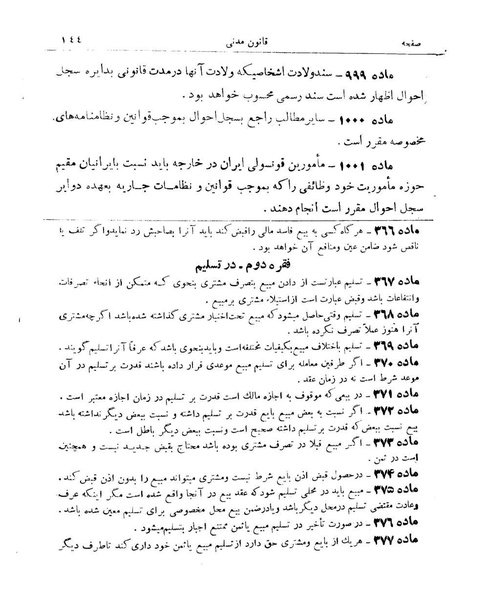 صفحه قانون مدنی ۱٤٤
ماده ۹۹۹ - سند ولادت اشخاصیکه ولادت آنها در مدت قانونی بدایره سجل
احوال اظهار شده است سند رسمی محسوب خواهد بود .
ماده ۱۰۰۰ - سایر مطالب راجع بسجل احوال بموجب قوانین و نظامنامه‌های
مخصوصه مقرر است .
ماده ۱۰۰۱ - مأمورین قونسولی ایران در خارجه باید نسبت بایرانیان مقیم
حوزه مأموریت خود وظائفی را که بموجب قوانین و نظامات جاریه بعهده دوایر
سجل احوال مقرر است انجام دهند .
ماده ۳۶۶ - هرگاه کسی به بیع فاسد مالی را قبض کند باید آنرا بصاحبش رد نماید و اگر تلف یا
ناقص شود ضامن عین و منافع آن خواهد بود .
فقره دوم - در تسلیم
ماده ۳۶۷ - تسلیم عبارتست از دادن مبیع بتصرف مشتری بنحوی که متمکن از انحاء تصرفات
وانتفاعات باشد وقبض عبارت است از استیلاء مشتری بر مبیع .
ماده ۳۶۸ - تسلیم وقتی حاصل میشود که مبیع تحت اختیار مشتری گذاشته شده باشد اگرچه مشتری
آنرا هنوز عملاً تصرف نکرده باشد .
ماده ۳۶۹ - تسلیم باختلاف مبیع بکیفیات مختلفه است و باید بنحوی باشد که عرفاً آنرا تسلیم گویند .
ماده ۳۷۰ - اگر طرفین معامله برای تسلیم مبیع موعدی قرار داده باشند قدرت بر تسلیم در آن
موعد شرط است نه در زمان عقد .
ماده ۳۷۱ - در بیعی که موقوف به اجازه مالك است قدرت بر تسلیم در زمان اجازه معتبر است .
ماده ۳۷۲ - اگر نسبت به بعض مبیع بایع قدرت بر تسلیم داشته و نسبت ببعض دیگر نداشته باشد
بیع نسبت ببعض که قدرت بر تسلیم داشته صحیح است ونسبت ببعض دیگر باطل است .
ماده ۳۷۳ - اگر مبیع قبلا در تصرف مشتری بوده باشد محتاج بقبض جدید نیست و همچنین
است در ثمن .
ماده ۳۷۴ - درحصول قبض اذن بایع شرط نیست ومشتری میتواند مبیع را بدون اذن قبض کند .
ماده ۳۷۵ - مبیع باید در محلی تسلیم شود که عقد بیع در آنجا واقع شده است مگر اینکه عرف
وعادت مقتضی تسلیم در محل دیگر باشد ویا در ضمن بیع محل مخصوصی برای تسلیم معین شده باشد .
ماده ۳۷۶ - در صورت تأخیر در تسلیم مبیع یا ثمن ممتنع اجبار بتسلیم میشود .
ماده ۳۷۷ - هریك از بایع ومشتری حق دارد از تسلیم مبیع یا ثمن خود داری کند تا طرف دیگر